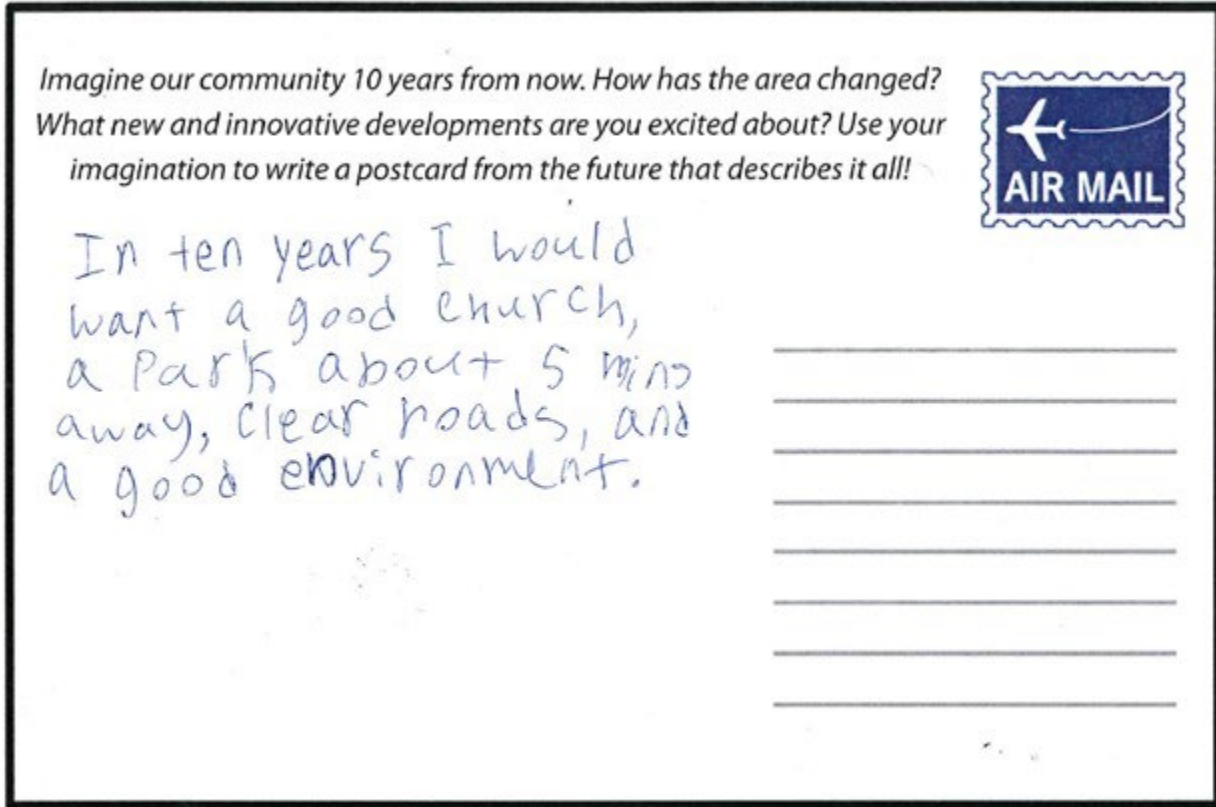 Imagine our community 10 years from now. How has the area changed?
What new and innovative developments are you excited about? Use your
imagination to write a postcard from the future that describes it all!
AIR MAIL
In ten years I would
want a good church,
a Park about 5 mins
away, Clear roads, and
a good environment.